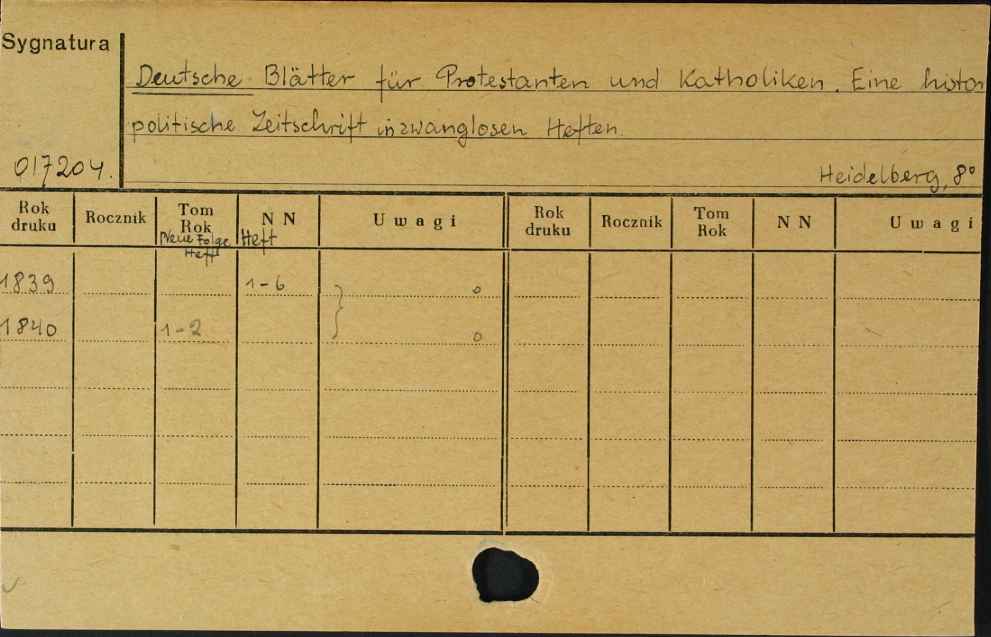 Sygnatura
Deutsche Blätter für Protestanten und Katholiken. Eine histor
politische Zeitschrift in zwanglosen Heften.
017204.
Heidelberg, 8°
Rok druku Rocznik Tom Rok Neue Folge Heft N N Heft Uwagi Rok druku Rocznik Tom Rok N N Uwagi
1839 1-6 } o
1840 1-2 o